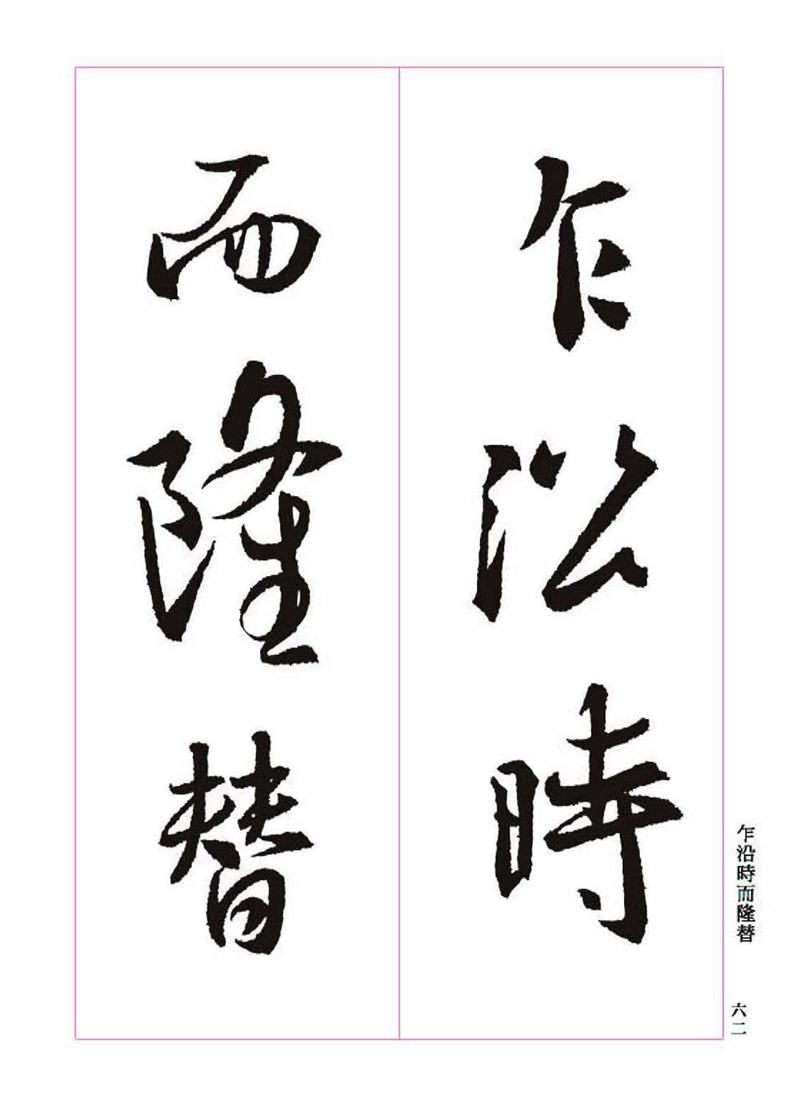 乍沿時
而隆替
乍沿時而隆替
六二